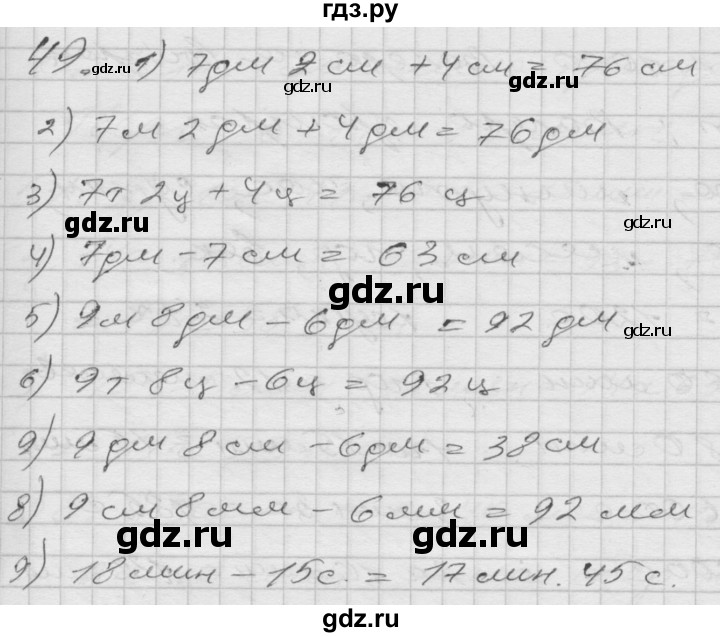 гдз.ру
49. gdz.ru 1) 7дм 2см + 4см = 76 см
gdz.ru gdz.ru
2) 7м 2дм + 4дм = 76дм
3) 7т 2ц + 4ц = 76 ц
gdz.ru gdz.ru
4) 7дм - 7см = 63 см
gdz.ru
5) 9м 8дм - 6дм = 92 дм
gdz.ru
6) 9т 8ц - 6ц = 92 ц
9) 9 дм 8 см - 6дм = 38 см
8) 9 см 8 мм - 6 мм = 92 мм
gdz.ru gdz.ru
9) 18 мин - 15 с. = 17 мин. 45 с.
gdz.ru